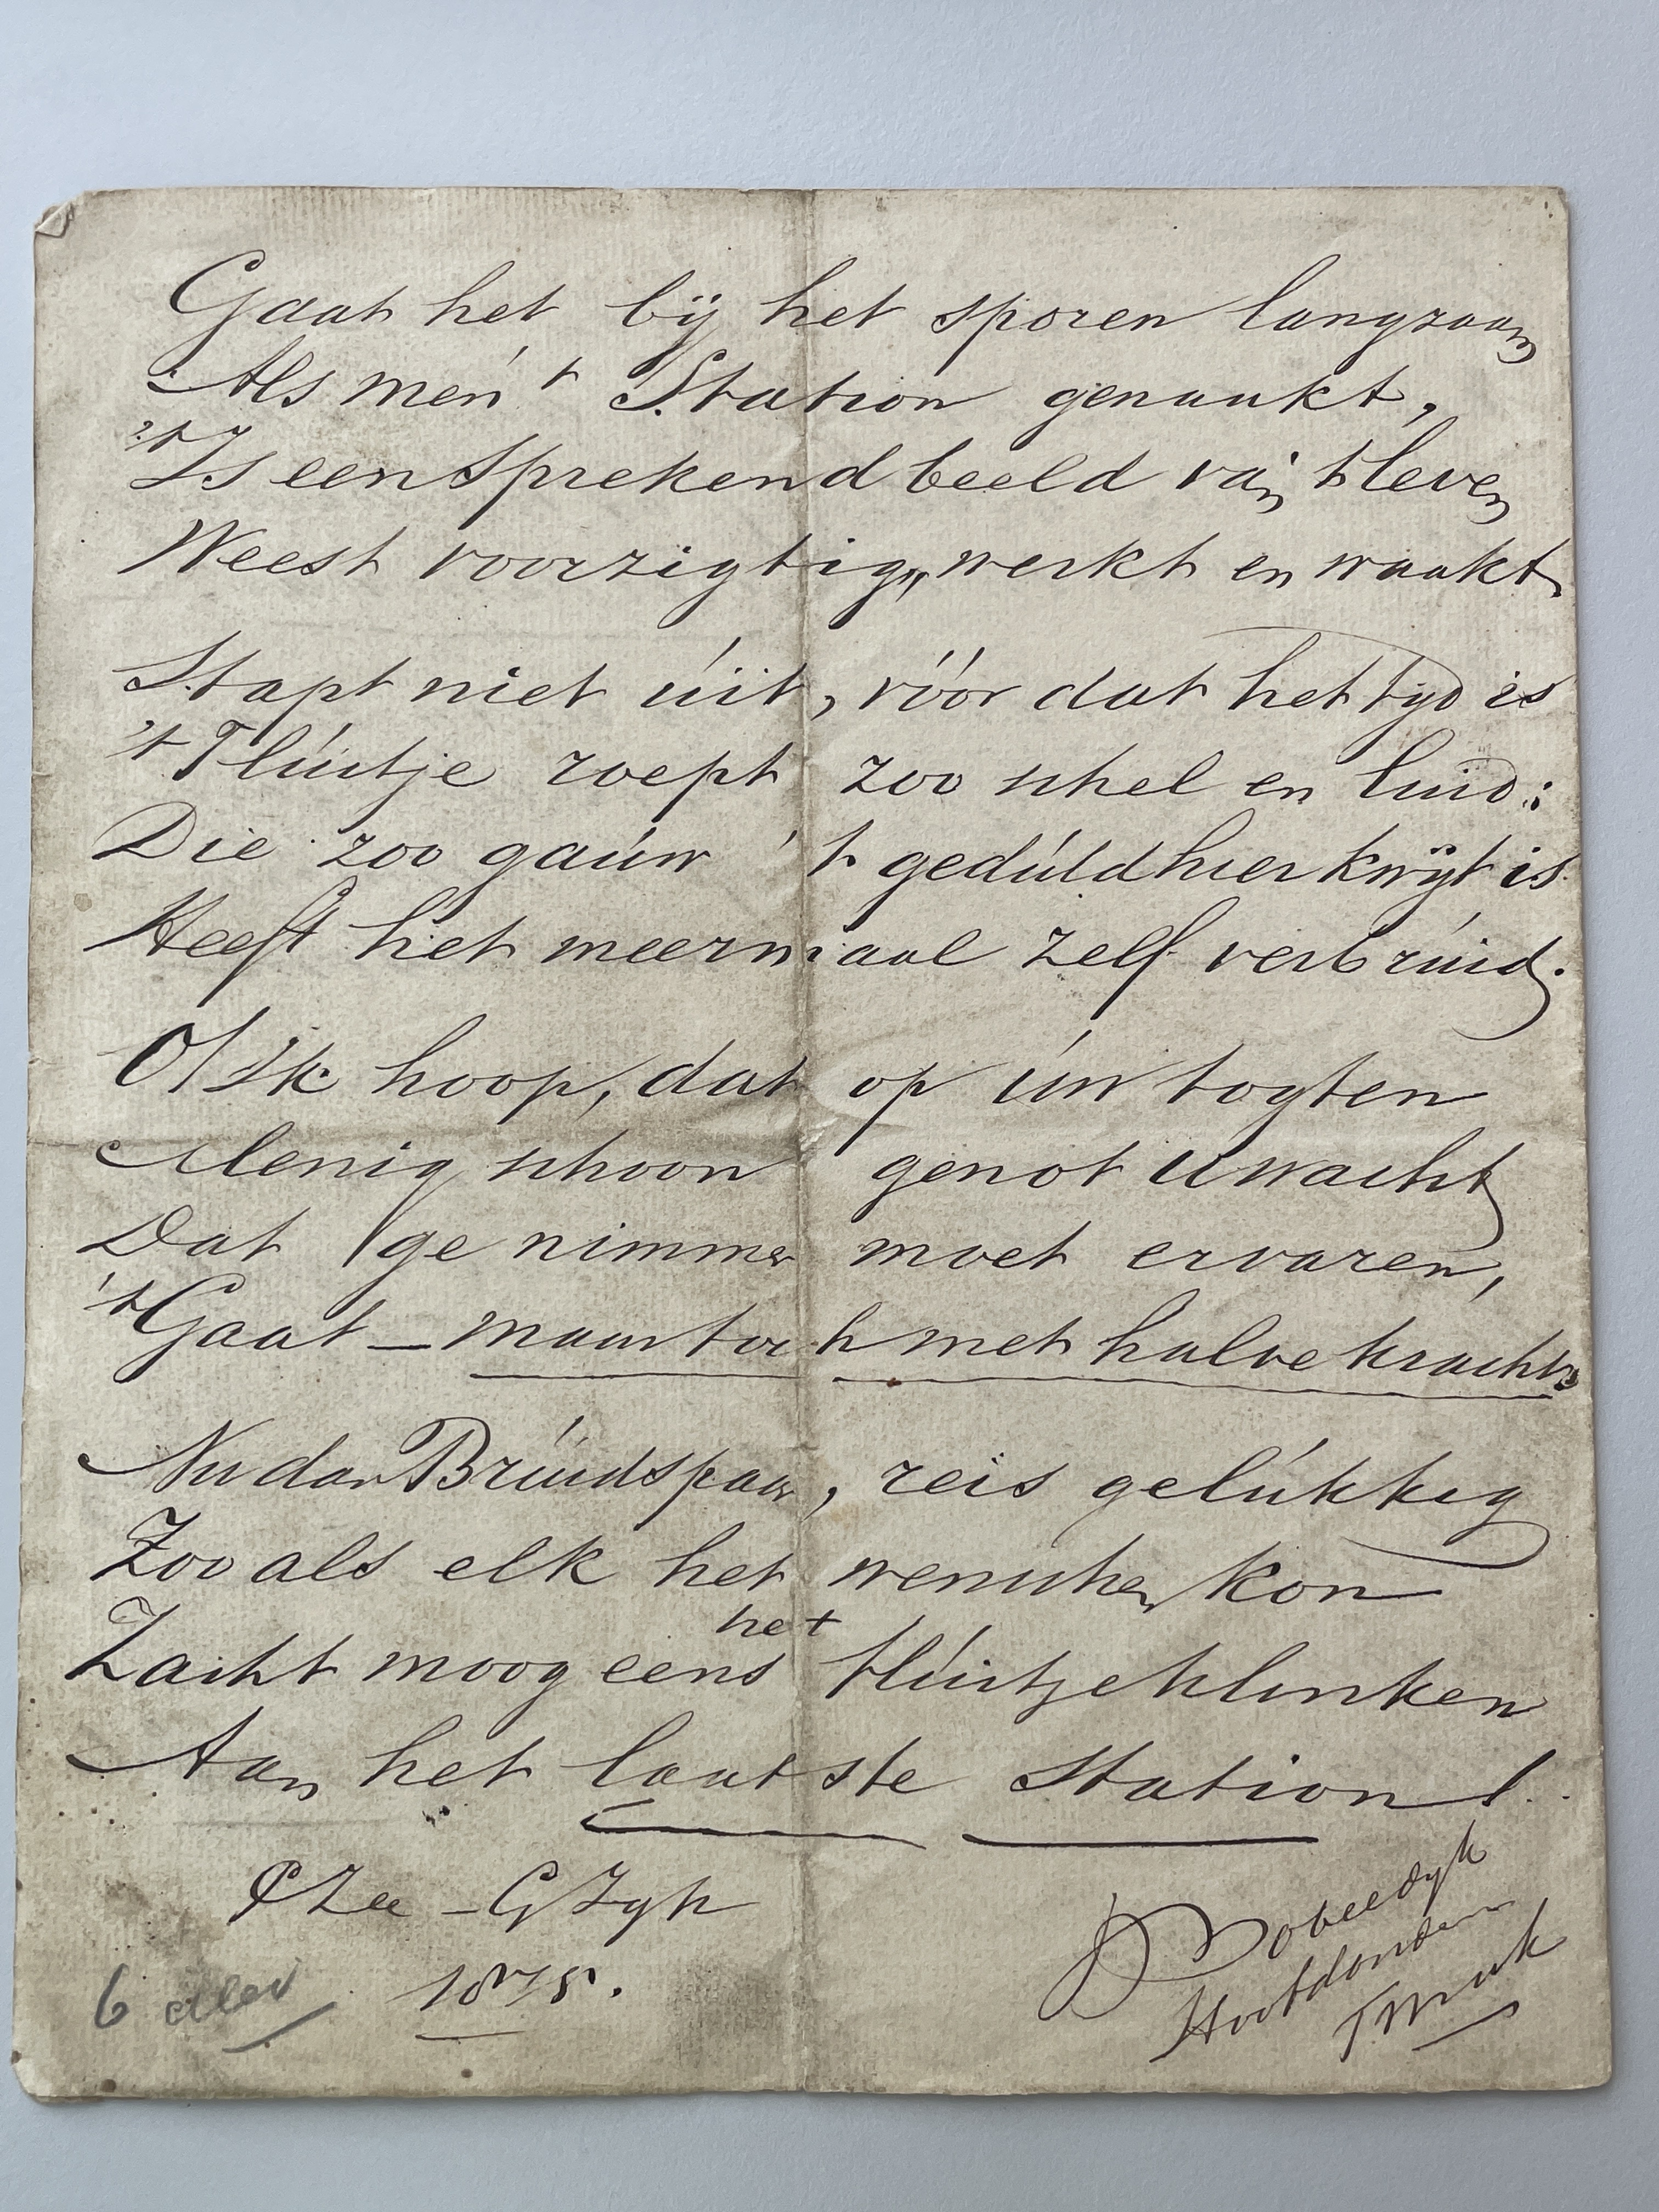 Gaat het bij het sporen langzaam
Als men 't Station genaakt,
't Is een sprekend beeld van 't leven
Weest voorzigtig, werkt en waakt
Stapt niet úit, vóór dat het tijd is
't Flúitje roept zoo schel en luid:
Die zoo gaúw 't gedúld hier kwijt is
Heeft het meermaal zelf verbrúid.
O! Ik hoop, dat op úw togten
Menig schoon genot U wacht
Dat ge nimmer moet ervaren,
't Gaat – maar toch met halve kracht.
Nu dan Brúidspaar, reis gelúkkig
Zoo als elk het wenschen kon
het
Zacht moog eens flúitje klinken
Aan het laatste Station!
1875.
6